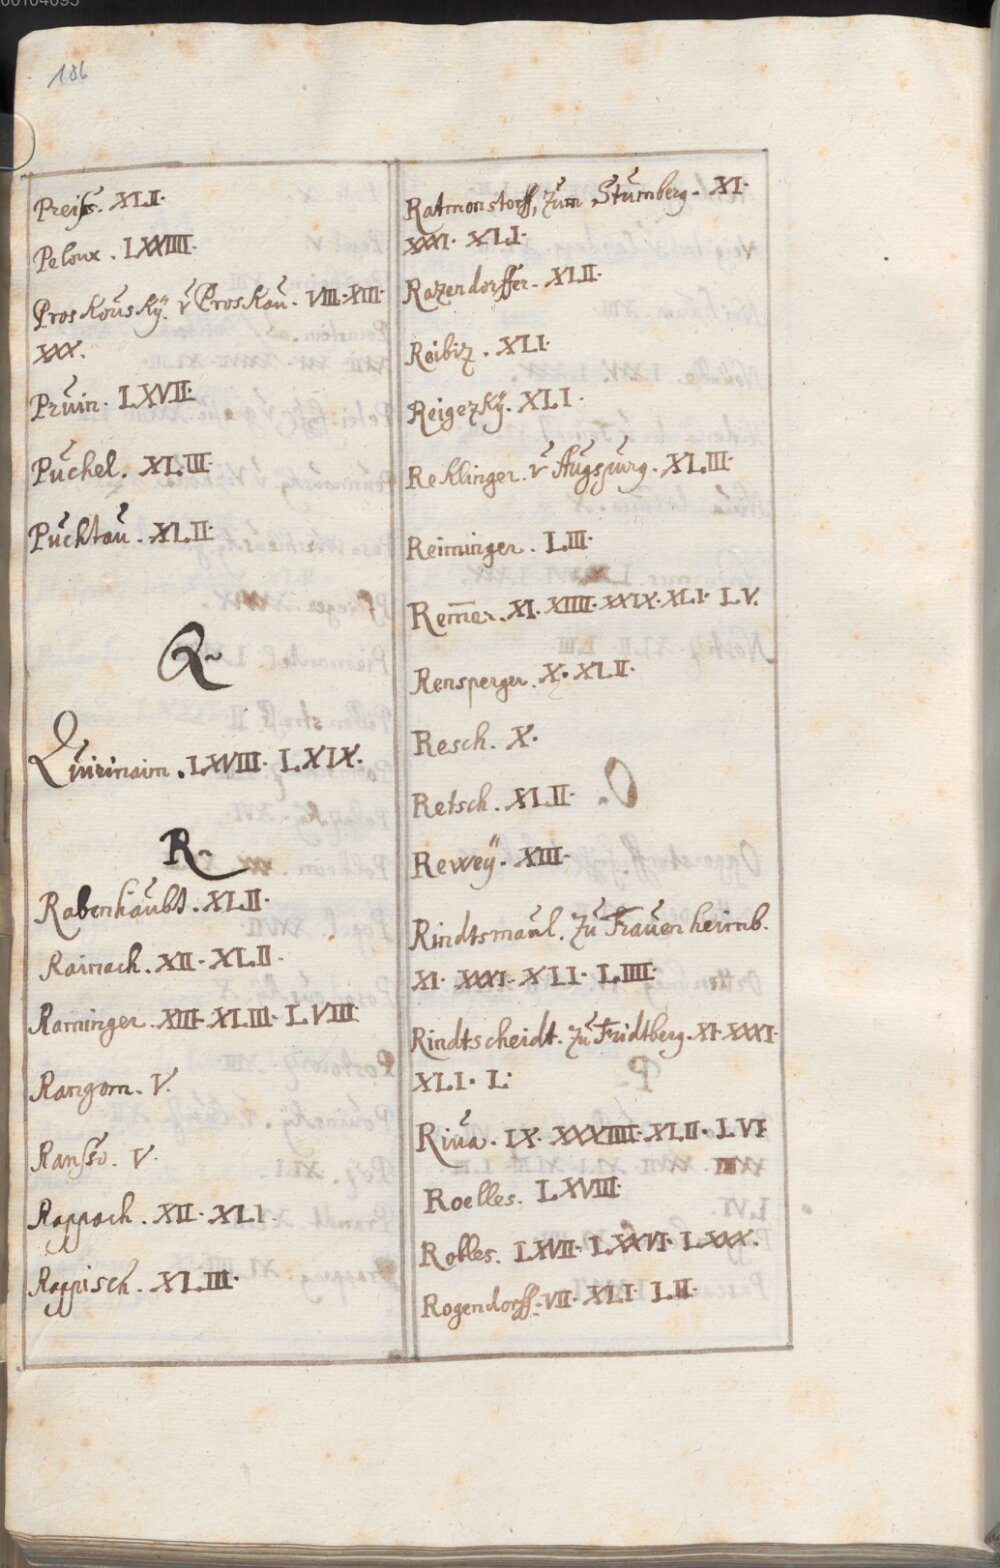 106
Preiß. XLI.
Peloux. LXXIIII.
Proskoúský. v Proskaú. VIII. XIII.
XXX.
Prúin. LXVII.
Púchel. XLIII.
Púchtaú. XLII.
Q
Quirinaim. LXVIII. LXIX.
R.
Rabenhaúbt. XLII.
Rainach. XII. XLII.
Raminger. XIII. XLIII. LVIII.
Rangom. V.
Ranßo. V.
Rappach. XII. XLI.
Rappisch. XLIII.
Ratmonstorff, zúm Stúmberg. XI.
XXXI. XLI.
Razendorffer. XLII.
Reibiz. XLI.
Reigezký. XLI.
Reklinger. v Aúgspúrg. XLIII.
Reiminger. LIII.
Rem̄er. XI. XIIII. XXIX. XLI. LV.
Rensperger. X. XLII.
Resch. X.
Retsch. XLII.
Reweÿ. XIII.
Rindtsmaúl. Zú Fraúenheimb.
XI. XXXI. XLI. LIIII.
Rindtscheidt. zú Fridtberg. XI. XXXI.
XLI. L.
Riúa. IX. XXXIIII. XLII. LVI.
Roelles. LXVIII.
Robles. LXVII. LXXVI. LXXX.
Rogendorff. VII. XLI. LII.